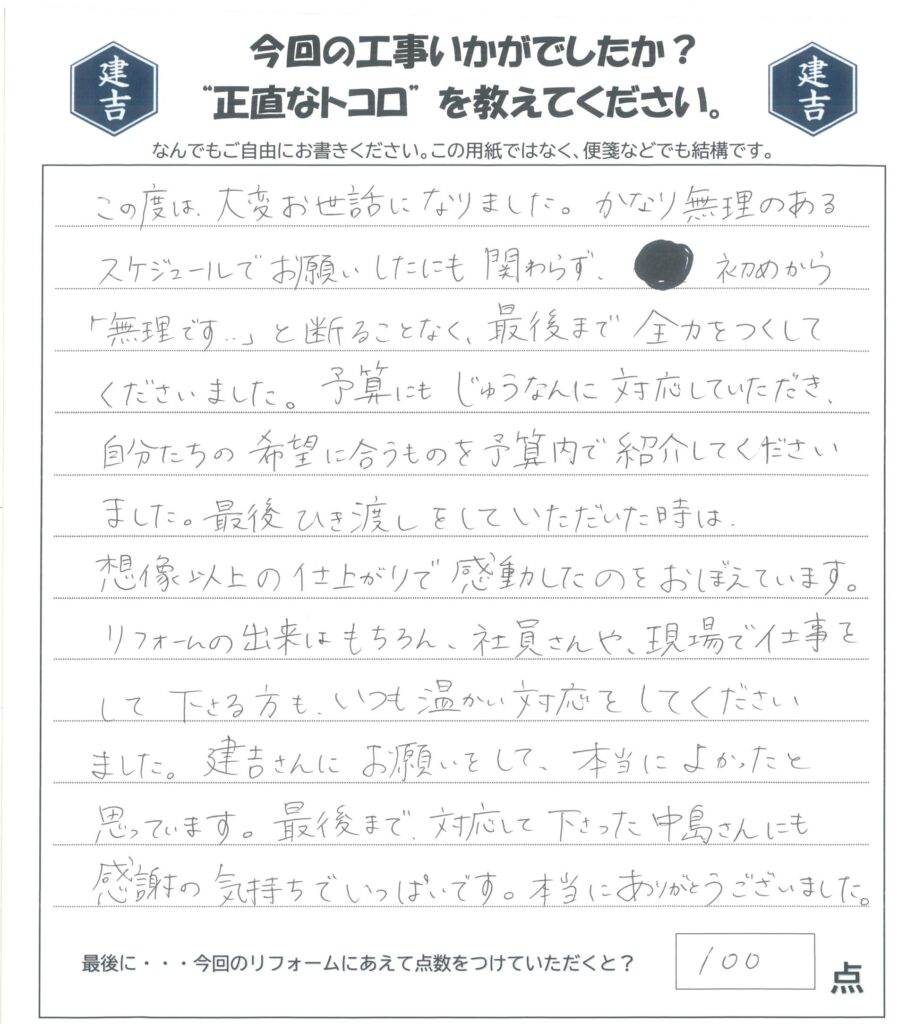 今回の工事いかがでしたか？
建吉
建吉
“正直なトコロ”を教えてください。
なんでもご自由にお書きください。この用紙ではなく、便箋などでも結構です。
この度は、大変お世話になりました。かなり無理のある
スケジュールでお願いしたにも関わらず、初めから
「無理です..」と断ることなく、最後まで全力をつくして
くださいました。予算にもじゅうなんに対応していただき、
自分たちの希望に合うものを予算内で紹介してください
ました。最後ひき渡しをしていただいた時は、
想像以上の仕上がりで感動したのをおぼえています。
リフォームの出来はもちろん、社員さんや、現場で仕事を
して下さる方も、いつも温かい対応をしてください
ました。建吉さんにお願いをして、本当によかったと
思っています。最後まで、対応して下さった中島さんにも
感謝の気持ちでいっぱいです。本当にありがとうございました。
最後に・・・今回のリフォームにあえて点数をつけていただくと？ 100 点